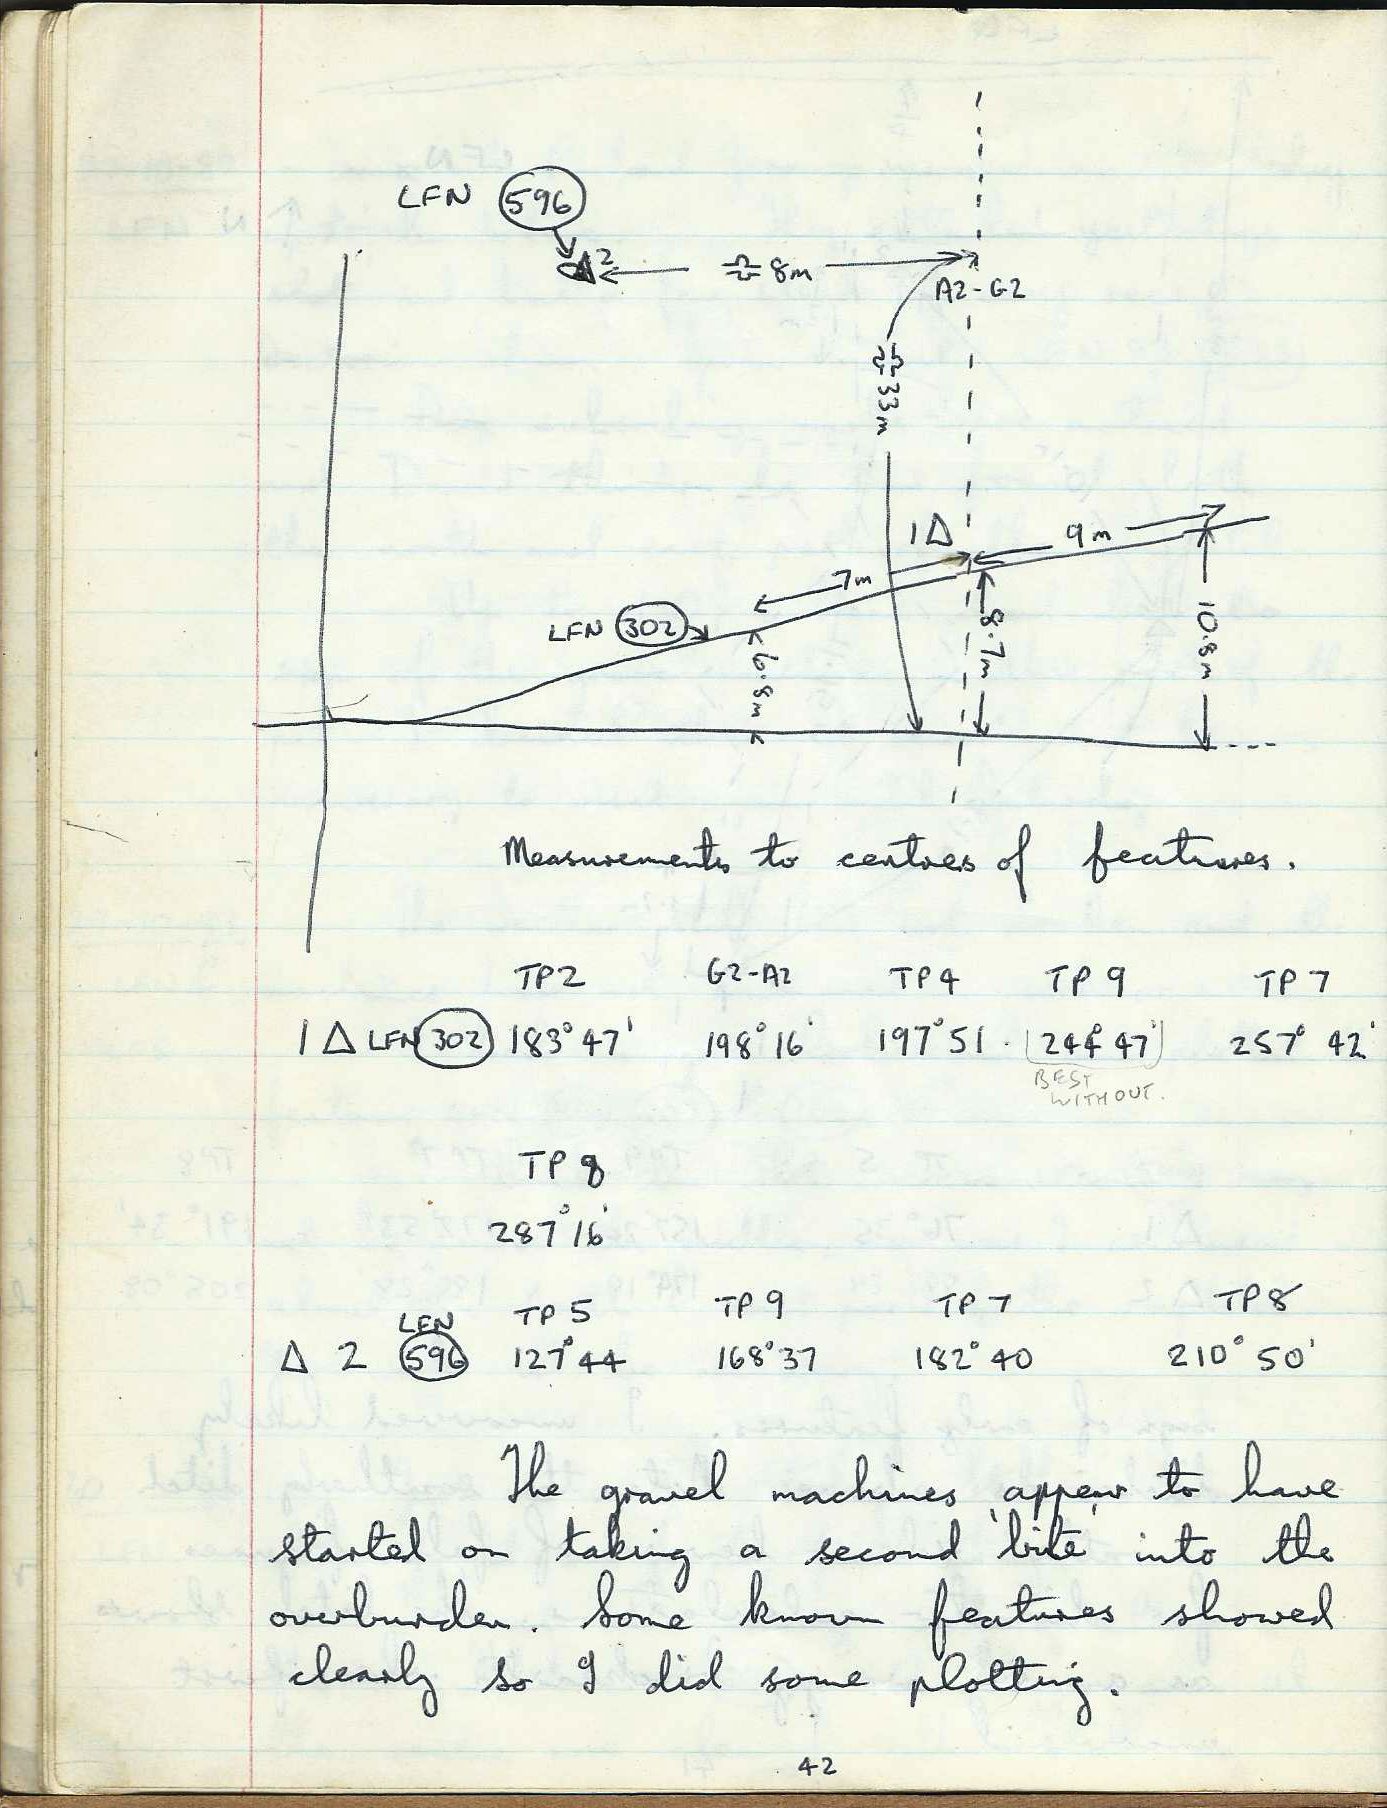 LFN 596
Δ2 ≏ 8m
A2-G2
≏ 33m
1Δ 9m
7m
LFN 302
6.8m 8.7m 10.8m
Measurements to centres of features.
TP2 G2-A2 TP4 TP 9 TP 7
1 Δ LFN 302 183°47' 198°16' 197°51 (244°47') 257° 42'
BEST
WITHOUT.
TP 8
287°16'
LFN TP 5 TP 9 TP 7 TP 8
Δ 2 596 127°44 168°37 182°40 210° 50'
The gravel machines appear to have
started on taking a second 'bite' into the
overburden. Some known features showed
clearly so I did some plotting.
42